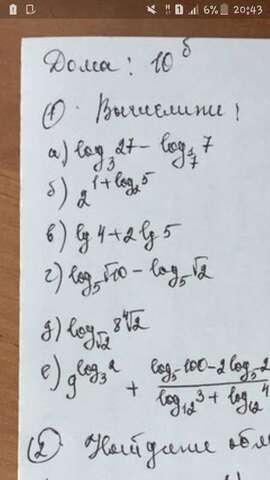 6% 20:43
Дома: 10 б
① Вычислить!
а) log₃ 27 − log_{1/7} 7
б) 2^{1+log₂ 5}
в) lg 4 + 2 lg 5
г) log₅ √10 − log₅ √2
д) log_{√2} 8 ∜2
е) 9^{log₃ 2} + (log₅ 100 − 2 log₅ 2)/(log₁₂ 3 + log₁₂ 4)
② Найдите обл